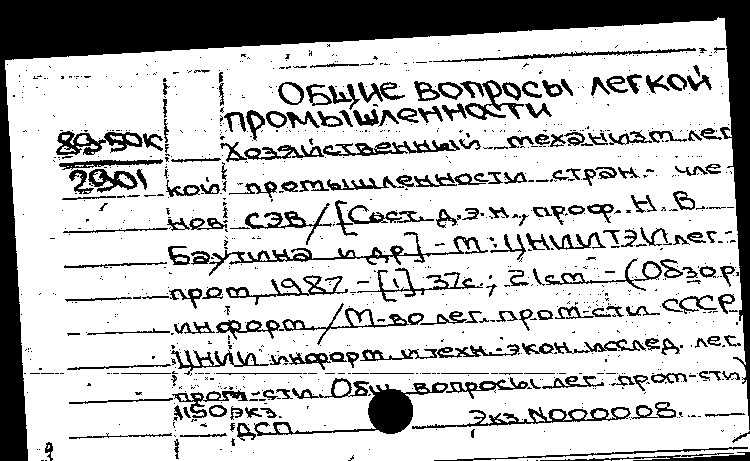 Общие вопросы легкой
промышленности
89-50к
2901
Хозяйственный механизм лег
кой промышленности стран - чле-
нов СЭВ / [Сост. д.э.н., проф. Н. В.
Баутина и др] - М: ЦНИИТЭИлег-
пром, 1987. - [1], 37с.; 21см. - (Обзор.
информ. / М-во лег. пром-сти СССР,
ЦНИИ информ. и техн.-экон. исслед. лег.
пром-сти. Общ. вопросы лег. пром-сти)
1150 экз.
Экз.N000008.
ДСП.